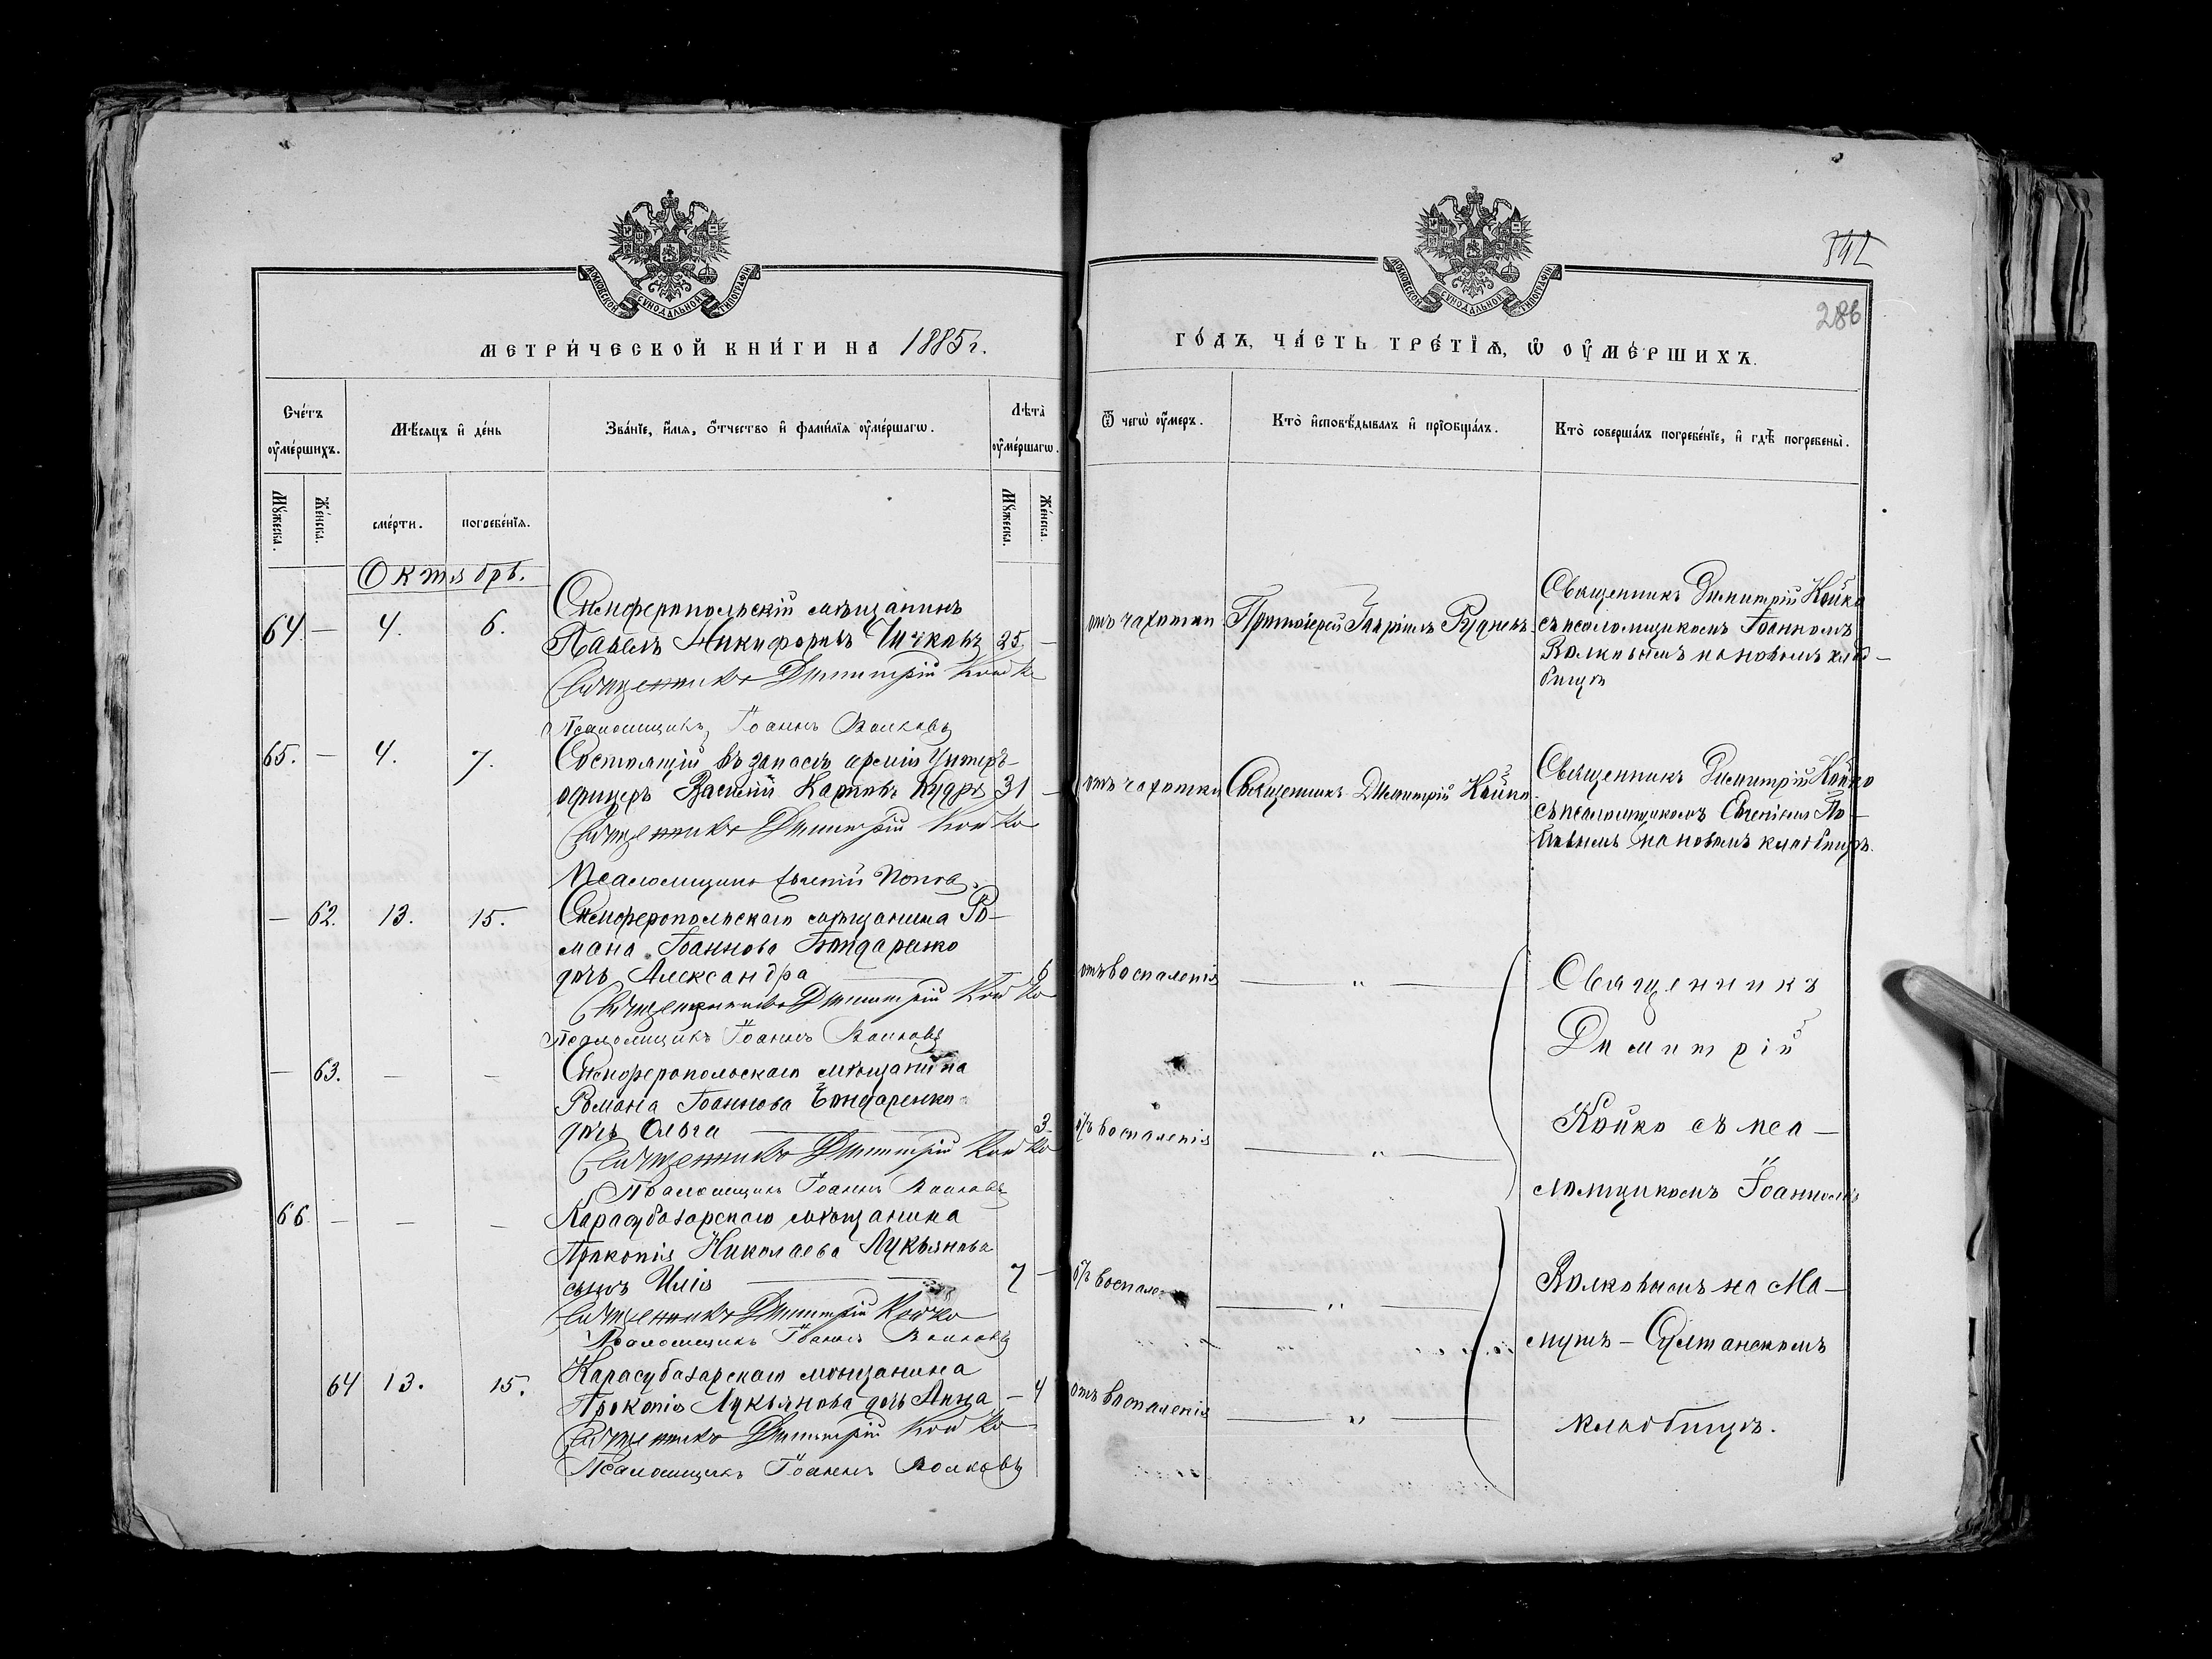 МОСКОВСКОЙ СУНОДАЛЬНОЙ ТИПОГРАФІИ
МЕТРИ́ЧЕСКОЙ КНИ́ГИ НА 1885 г.
Сче́тъ ᲂу҆ме́ршихъ.
Мѣ́сяцъ и҆ де́нь
Зва́нїе, и҆́мѧ, ѻ҆́тчество и҆ фами́лїѧ ᲂу҆ме́ршагѡ.
Лѣта̀ ᲂу҆ме́ршагѡ.
Мꙋ́жеска.
Же́нска.
сме́рти.
погребе́нїѧ.
Мꙋ́жеска.
Же́нска.
Октябрь.
64 — 4. 6.
Симферопольскій мѣщанинъ
Павелъ Никифоровъ Чичковъ 25. —
Священникъ Димитрій Койко
Псаломщикъ Іоаннъ Волковъ
65. — 4. 7.
Состоящій въ запасѣ арміи Унтеръ-
офицеръ Василій Карповъ Кудрь 31 —
Священникъ Димитрій Койко
Псаломщикъ Евгеній Поповъ
— 62. 13. 15.
Симферопольскаго мѣщанина Ро-
мана Іоаннова Бондаренко
дочь Александра 6
Священникъ Димитрій Койко
Псаломщикъ Іоаннъ Волковъ
— 63. — —
Симферопольскаго мѣщанина
Романа Іоаннова Бондаренко
дочь Ольга 3
Священникъ Димитрій Койко
Псаломщикъ Іоаннъ Волковъ
66 — — —
Карасубазарскаго мѣщанина
Прокопія Николаева Лукьянова
сынъ Илія 7 —
Священникъ Димитрій Койко
Псаломщикъ Іоаннъ Волковъ
64 13. 15.
Карасубазарскаго мѣщанина
Прокопія Лукьянова дочь Анна — 4
Священникъ Димитрій Койко
Псаломщикъ Іоаннъ Волковъ
МОСКОВСКОЙ СУНОДАЛЬНОЙ ТИПОГРАФІИ
286
ГО́ДЪ, ЧА́СТЬ ТРЕ́ТЇѦ, Ѡ҆ ОУ҆МЕ́РШИХЪ.
Ѿ чегѡ̀ ᲂу҆́меръ.
Кто̀ и҆сповѣ́дывалъ и҆ прїобща́лъ.
Кто̀ соверша́лъ погребе́нїе, и҆ гдѣ̀ погребены̀.
отъ чахотки
Протоіерей Гавріилъ Рудневъ
Священникъ Димитрій Койко
съ псаломщикомъ Іоанномъ
Волковымъ на новомъ клад-
бищѣ
отъ чахотки
Священникъ Димитрій Койко
Священникъ Димитрій Койко
съ псаломщикомъ Евгеніемъ По-
повымъ на новомъ кладбищѣ.
отъ воспаленія — " —
отъ воспаленія — " —
отъ воспален — " —
отъ воспаленія — " —
Священникъ
Димитрій
Койко съ пса-
ломщикомъ Іоанномъ
Волковымъ на Ма-
мутъ-Султанскомъ
кладбищѣ.